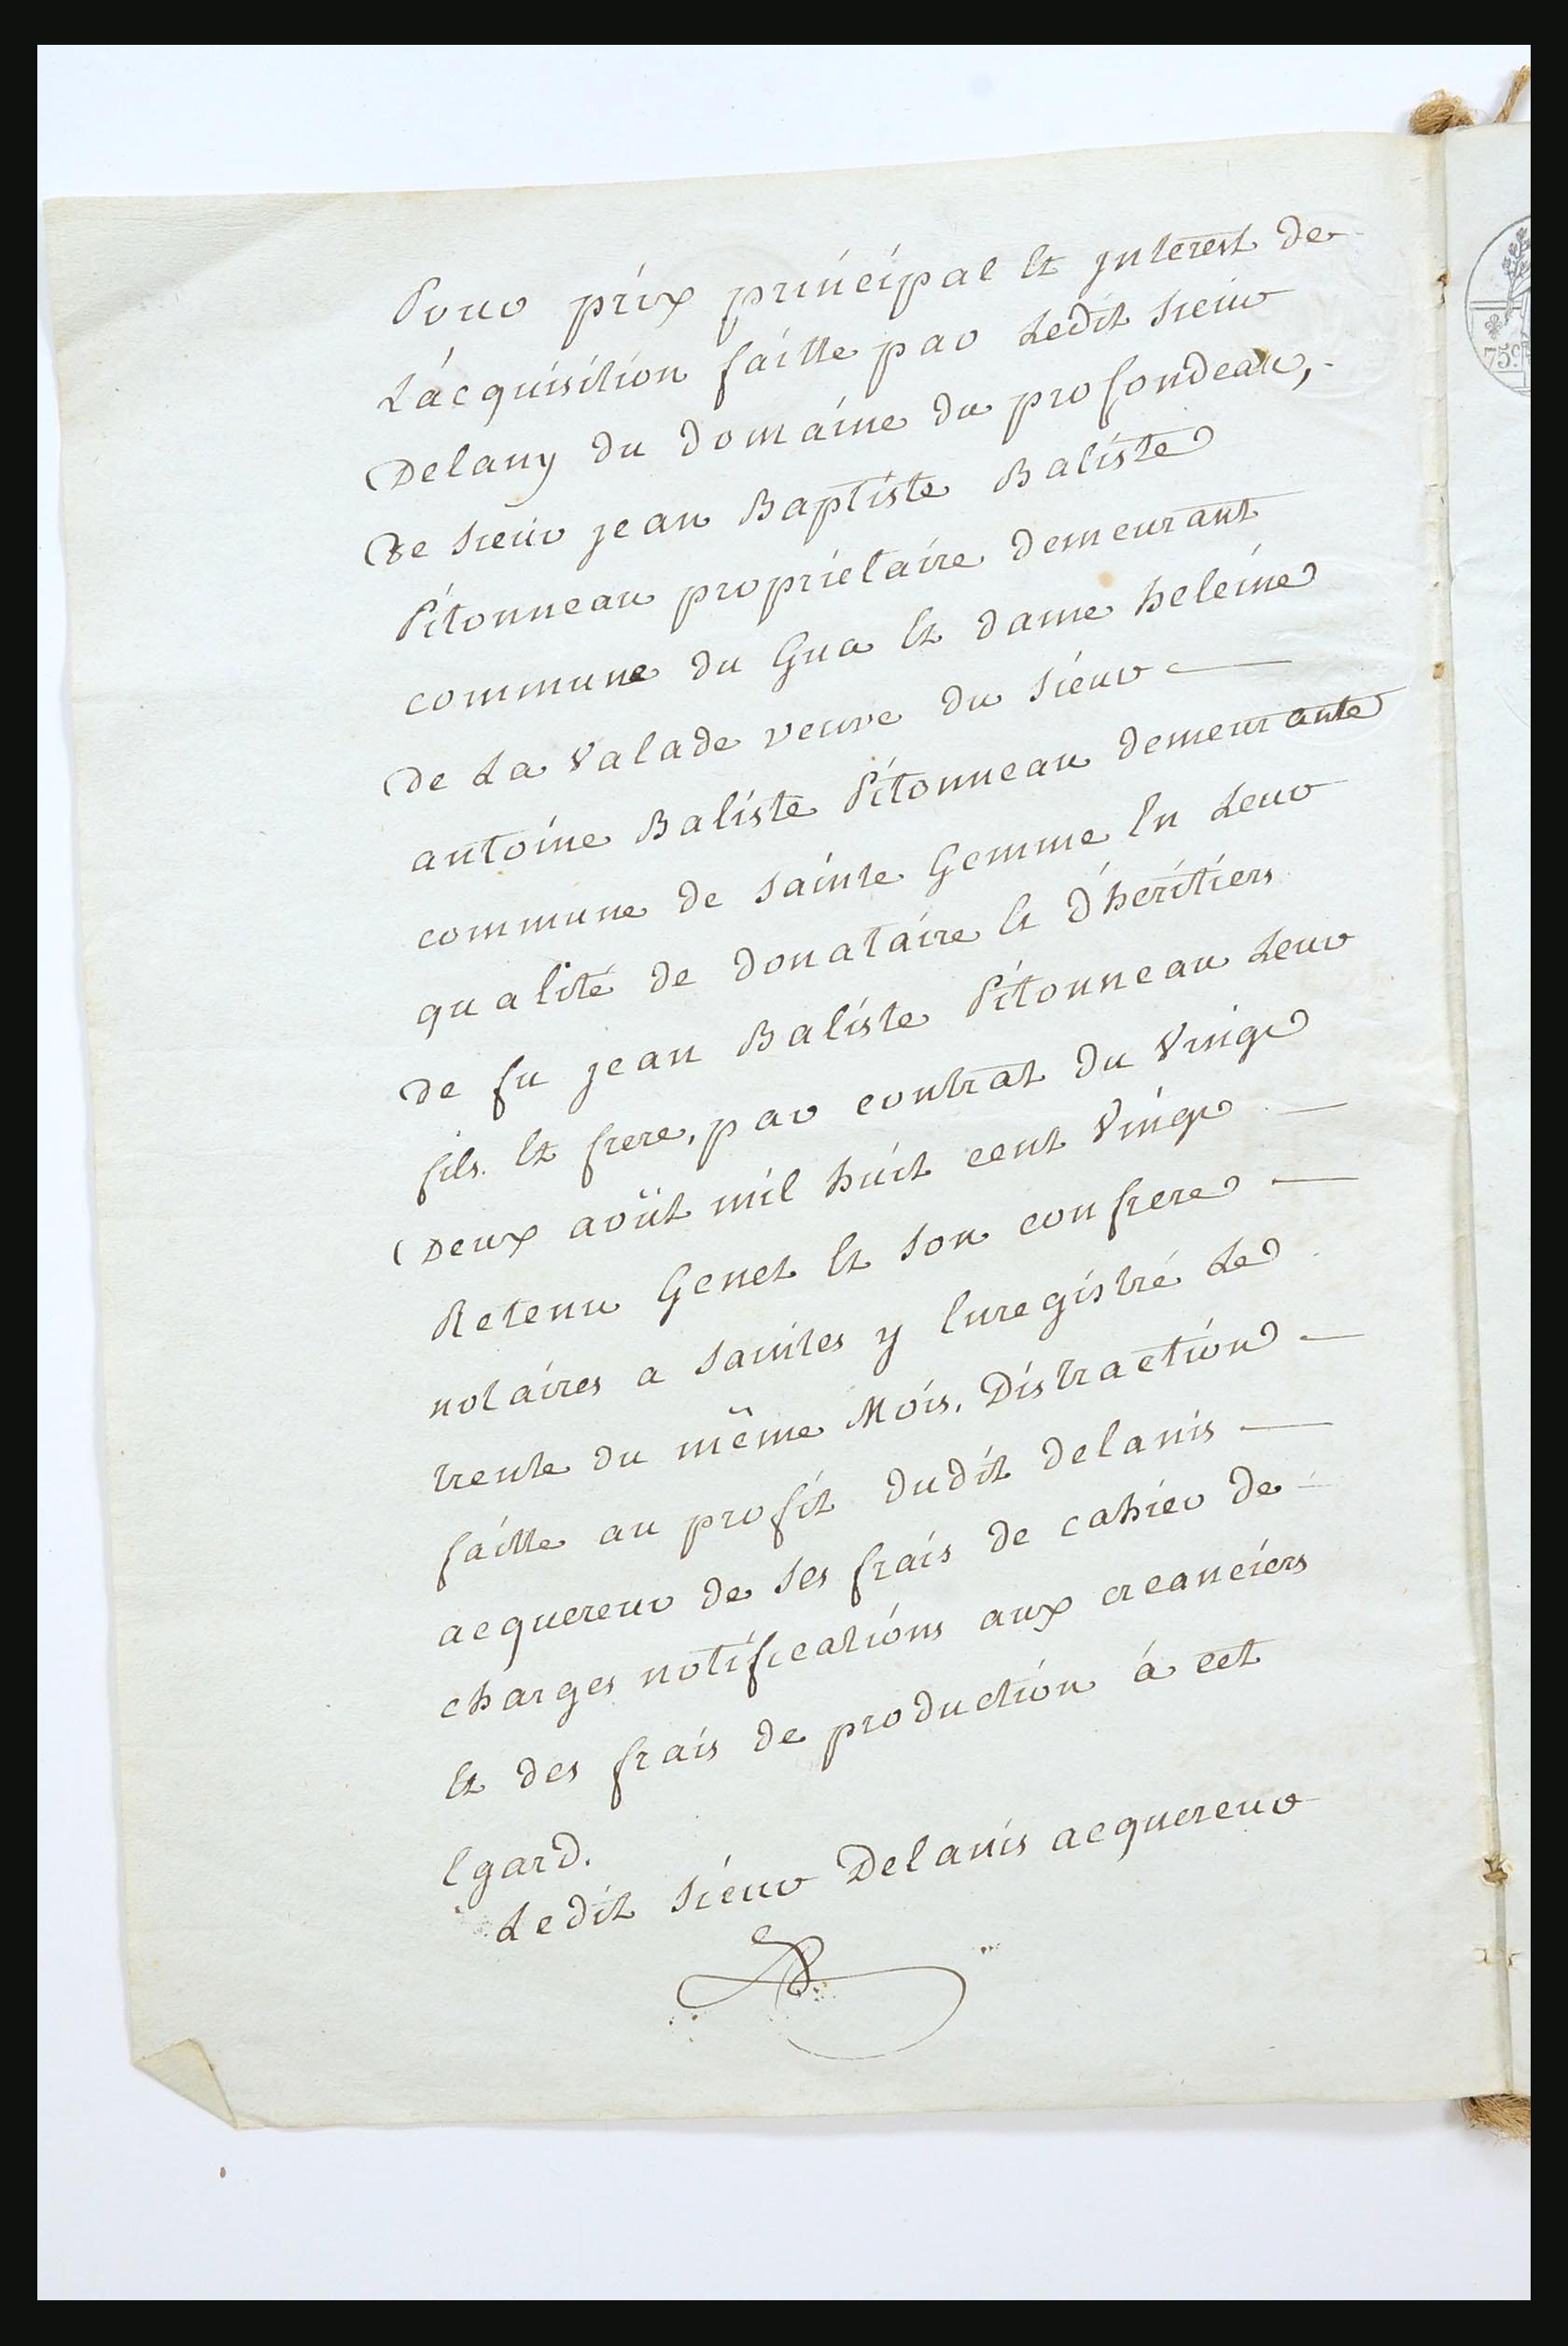 Pour prix principal Et jnterest de
L'acquisition faitte par Ledit Sieur
Delany du domaine du profondeau,
De Sieur jean Baptiste Baliste
Pitonneau proprietaire demeurant
commune du Gua Et dame heleine
De La Valade veuve du Sieur
antoine Baliste Pitonneau demeurante
commune de Sainte Gemme En Leur
qualité de donataire Et d'heritiers
De fu jean Baliste Pitonneau Leur
fils Et frere, par contrat du Vingt
Deux août mil huit cent Vingt
Retenu Genet Et Son confrere
notaires a Saintes y Enregistré Le
trente du même Mois, Distraction
faitte au profit dudit delanis
acquereur de Ses frais de cahier de
charges notifications aux creanciers
Et des frais de production á cet
Egard.
Ledit Sieur Delanis acquereur
75c